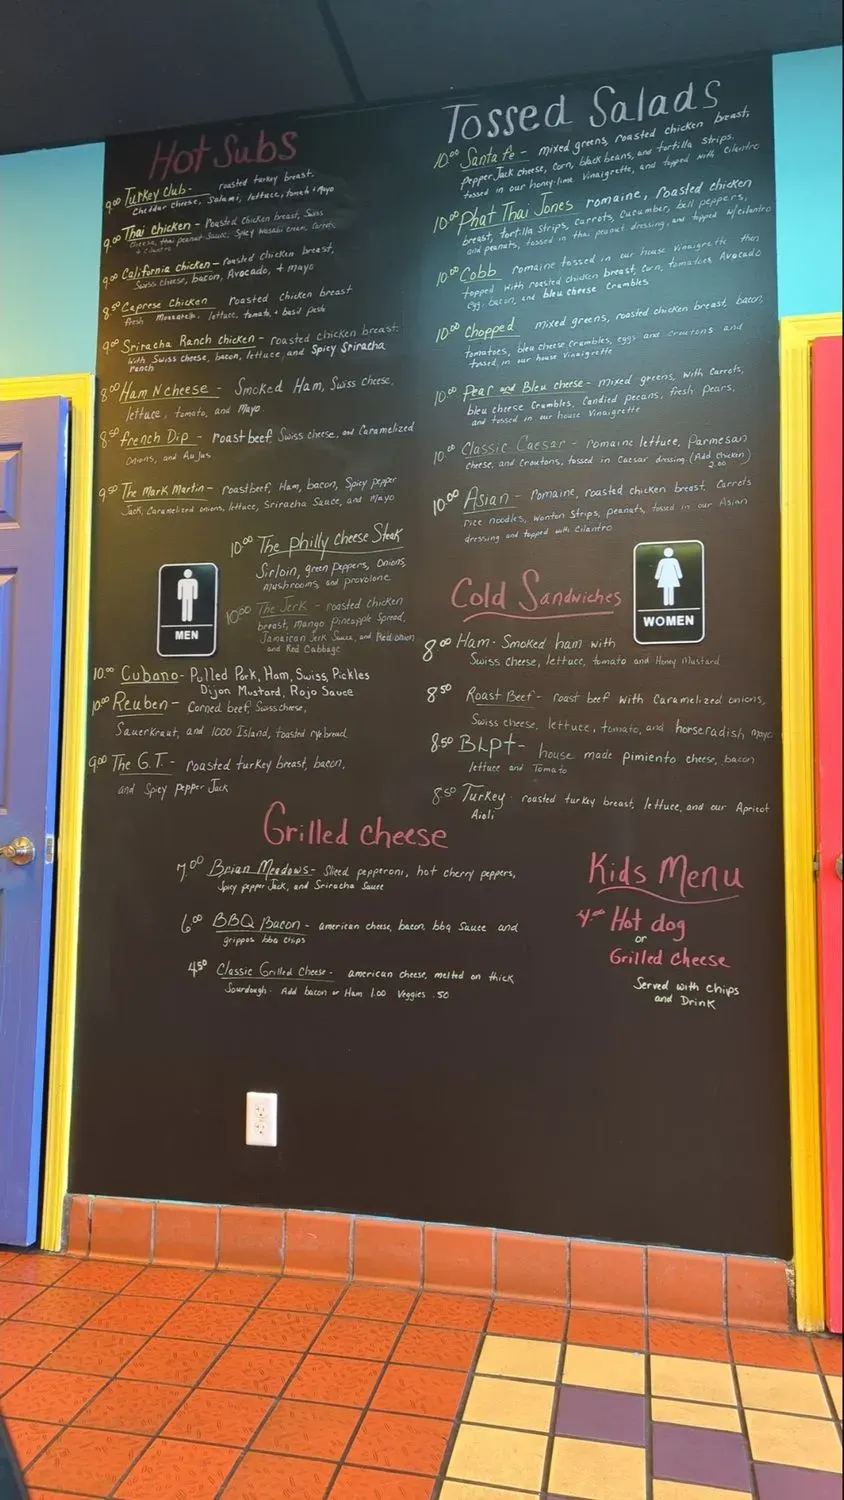 Hot Subs
9.00 Turkey Club - roasted turkey breast.
Cheddar Cheese, Salami, lettuce, tomato + Mayo
9.00 Thai Chicken - Roasted chicken breast, Swiss
Cheese, thai peanut Sauce, Spicy Wasabi cream, Carrots,
+ Cilantro
9.00 California chicken - roasted chicken breast,
Swiss cheese, bacon, Avocado, + Mayo
8.50 Caprese Chicken roasted chicken breast
fresh Mozzarella, lettuce, tomato, + basil pesto
9.00 Sriracha Ranch chicken - roasted chicken breast.
With Swiss cheese, bacon, lettuce, and Spicy Sriracha
ranch
8.00 Ham N cheese - Smoked Ham, Swiss cheese,
lettuce, tomato, and Mayo
8.50 french Dip - roast beef Swiss cheese, and Caramelized
Onions, and Au Jus
9.50 The Mark Martin - roastbeef, Ham, bacon, Spicy pepper
Jack, Caramelized onions, lettuce, Sriracha Sauce, and Mayo
10.00 The philly Cheese Steak
Sirloin, green peppers, Onions,
Mushrooms, and provolone
10.00 The Jerk - roasted chicken
breast, mango Pineapple Spread,
Jamaican Jerk Sauce, and Red onion
and Red Cabbage
MEN
10.00 Cubano - Pulled Pork, Ham, Swiss, Pickles
Dijon Mustard, Rojo Sauce
10.00 Reuben - Corned beef, Swiss cheese,
Sauerkraut, and 1000 Island, toasted rye bread
9.00 The G.T. - roasted turkey breast, bacon,
and Spicy pepper Jack
Tossed Salads
10.00 Santa fe - mixed greens, roasted chicken breast,
Pepper Jack cheese, Corn, black beans, and tortilla strips.
tossed in our honey-lime Vinaigrette, and topped with Cilantro
10.00 Phat Thai Jones romaine, roasted chicken
breast, tortilla Strips, Carrots, Cucumber, bell peppers,
and peanuts, tossed in thai peanut dressing, and topped w/cilantro
10.00 Cobb romaine tossed in our house Vinaigrette then
topped with roasted chicken breast, Corn, tomatoes, Avocado
egg, bacon, and bleu cheese Crumbles
10.00 Chopped mixed greens, roasted chicken breast, bacon,
tomatoes, bleu cheese Crumbles, eggs and croutons and
tossed in our house Vinaigrette
10.00 Pear and Bleu cheese - mixed greens, with Carrots,
bleu cheese Crumbles, Candied pecans, fresh pears,
and tossed in our house Vinaigrette
10.00 Classic Caesar - romaine lettuce, Parmesan
Cheese, and Croutons, tossed in Caesar dressing. (Add Chicken)
2.00
10.00 Asian - Romaine, roasted chicken breast. Carrots
rice noodles, wonton Strips, peanuts, tossed in our Asian
dressing and topped with Cilantro
WOMEN
Cold Sandwiches
8.00 Ham - Smoked ham with
Swiss cheese, lettuce, tomato and Honey Mustard
8.50 Roast Beef - roast beef with Caramelized onions,
Swiss cheese, lettuce, tomato, and horseradish mayo
8.50 BLPT - house made pimiento cheese, bacon
lettuce and Tomato
8.50 Turkey - roasted turkey breast, lettuce, and our Apricot
Aioli
Grilled cheese
7.00 Brian Meadows - Sliced pepperoni, hot cherry peppers,
Spicy pepper Jack, and Sriracha Sauce
6.00 BBQ Bacon - american cheese, bacon, bbq Sauce and
grippos bbq chips
4.50 Classic Grilled Cheese - american cheese, melted on thick
Sourdough. Add bacon or Ham 1.00 Veggies .50
Kids Menu
4.00 Hot dog
or
Grilled cheese
Served with chips
and Drink